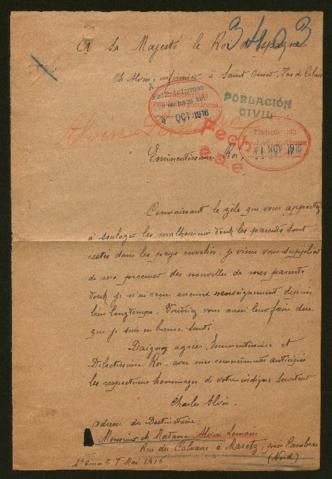 34103
A Sa Majesté le Roi d'Espagne
Ch Alvin, infirmier à Saint Omer, Pas de Calais
POBLACIÓN
CIVIL
Eminentissime Roi,
Connaissant le zèle que vous apportez
à soulager les malheureux dont les parents sont
restés dans les pays envahis, je viens vous supplier
de me procurer des nouvelles de mes parents
dont je n'ai reçu aucun renseignement depuis
bien longtemps. Veuillez vous aussi leur faire dire
que je suis en bonne santé.
Daignez agréer, Eminentissime et
Dilectissime Roi, avec mes remerciements anticipés
les respectueux hommages de votre indigne serviteur
Charles Alvin
Adresse du Destinataire:
Monsieur et Madame Alvin
Rue du Calvaire à Maretz, par Cambrai
(Nord)
Mai 1916